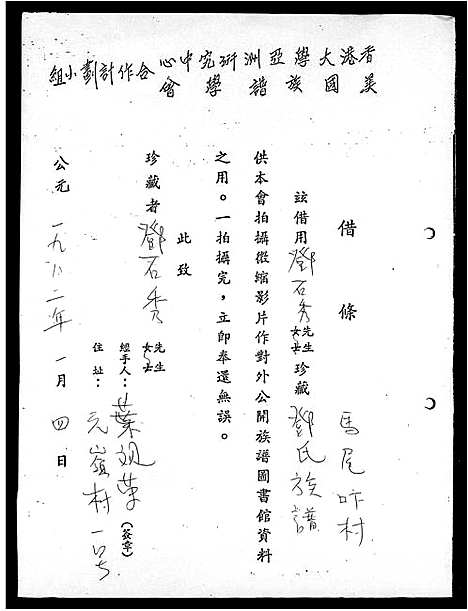 香港大學亞洲研究中心
美國族譜學會
合作計劃小組
借條
馬尾咔村
茲借用鄧石秀先生女士珍藏鄧氏族譜
供本會拍攝微縮影片作對外公開族譜圖書館資料
之用。一拍攝完，立即奉還無誤。
此致
珍藏者鄧石秀先生女士
經手人：葉祖華（簽章）
住址：元嶺村一号
公元一九八二年一月四日